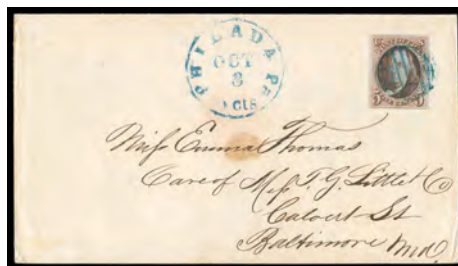 PHILADA Pa
OCT
cts
5 5
Miss Emma Thomas
Care of T. G. Little Co
Calvert St
Baltimore Md.